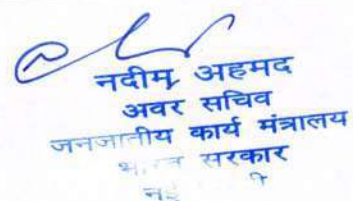 नदीम अहमद
अवर सचिव
जनजातीय कार्य मंत्रालय
सरकार